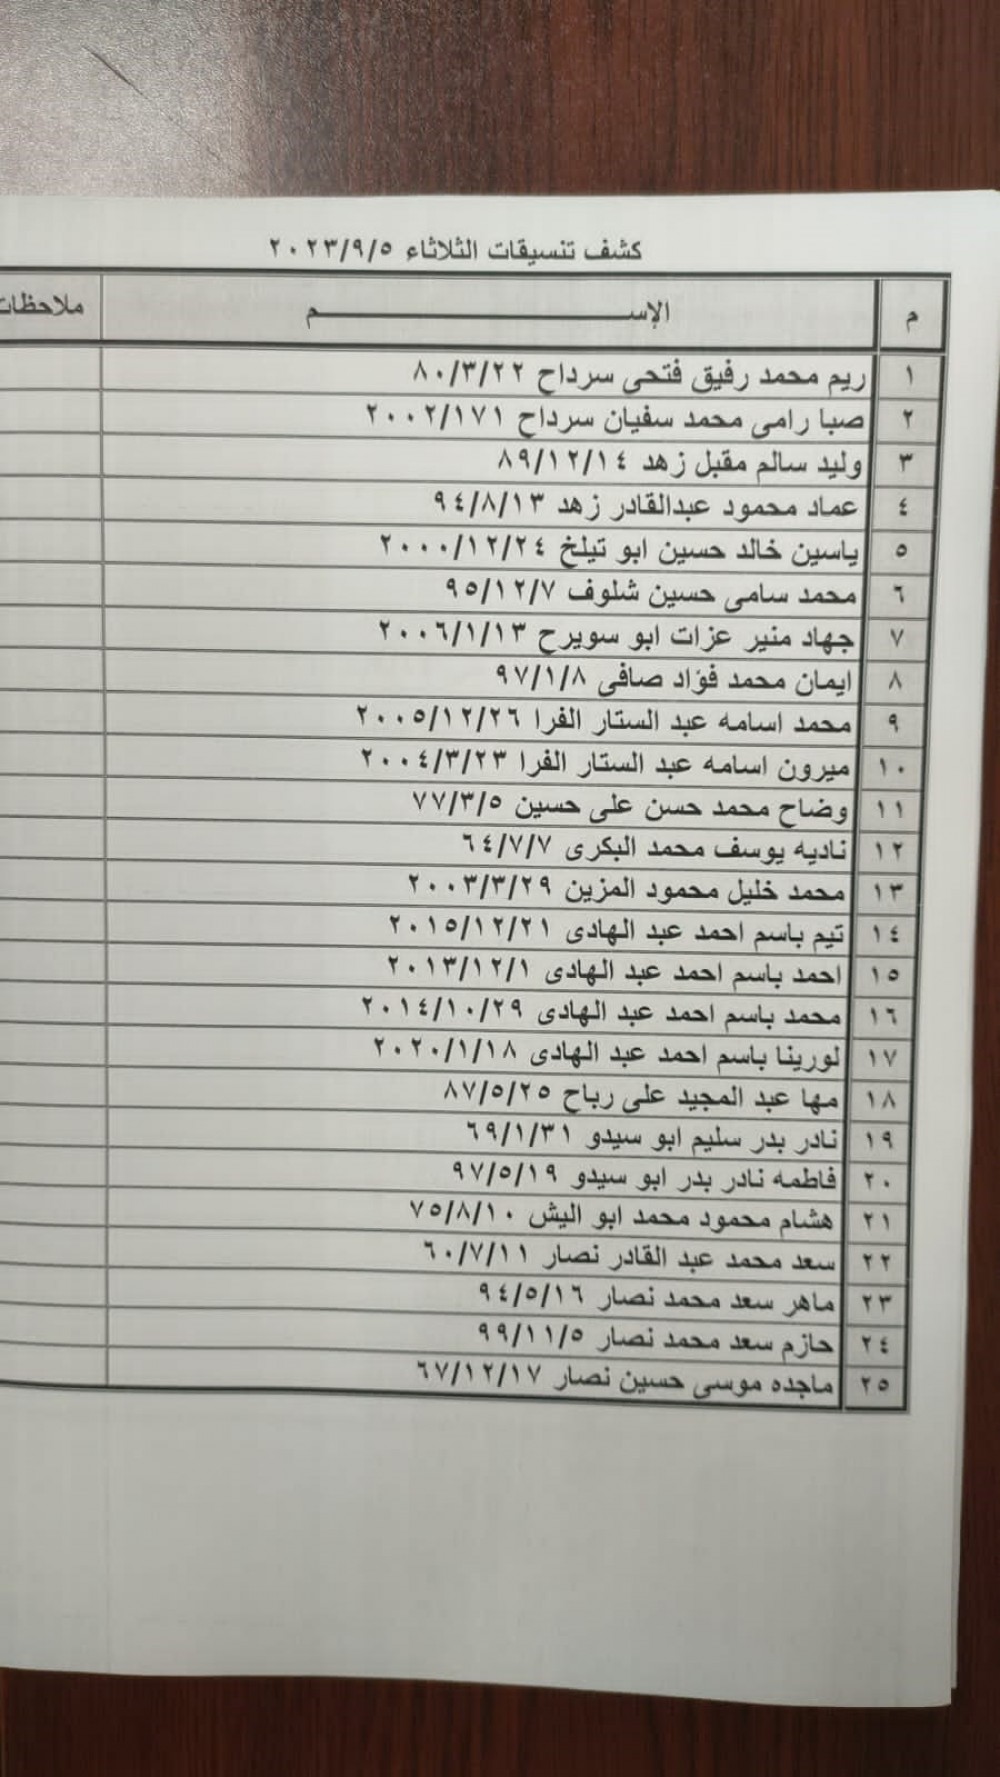 كشف تنسيقات الثلاثاء ٢٠٢٣/٩/٥
م الإســـــــــــم ملاحظات
١ ريم محمد رفيق فتحى سرداح ٨٠/٣/٢٢
٢ صبا رامى محمد سفيان سرداح ٢٠٠٢/١٧١
٣ وليد سالم مقبل زهد ٨٩/١٢/١٤
٤ عماد محمود عبدالقادر زهد ٩٤/٨/١٣
٥ ياسين خالد حسين ابو تيلخ ٢٠٠٠/١٢/٢٤
٦ محمد سامى حسين شلوف ٩٥/١٢/٧
٧ جهاد منير عزات ابو سويرح ٢٠٠٦/١/١٣
٨ ايمان محمد فؤاد صافى ٩٧/١/٨
٩ محمد اسامه عبد الستار الفرا ٢٠٠٥/١٢/٢٦
١٠ ميرون اسامه عبد الستار الفرا ٢٠٠٤/٣/٢٣
١١ وضاح محمد حسن على حسين ٧٧/٣/٥
١٢ ناديه يوسف محمد البكرى ٦٤/٧/٧
١٣ محمد خليل محمود المزين ٢٠٠٣/٣/٢٩
١٤ تيم باسم احمد عبد الهادى ٢٠١٥/١٢/٢١
١٥ احمد باسم احمد عبد الهادى ٢٠١٣/١٢/١
١٦ محمد باسم احمد عبد الهادى ٢٠١٤/١٠/٢٩
١٧ لورينا باسم احمد عبد الهادى ٢٠٢٠/١/١٨
١٨ مها عبد المجيد على رباح ٨٧/٥/٢٥
١٩ نادر بدر سليم ابو سيدو ٦٩/١/٣١
٢٠ فاطمه نادر بدر ابو سيدو ٩٧/٥/١٩
٢١ هشام محمود محمد ابو اليش ٧٥/٨/١٠
٢٢ سعد محمد عبد القادر نصار ٦٠/٧/١١
٢٣ ماهر سعد محمد نصار ٩٤/٥/١٦
٢٤ حازم سعد محمد نصار ٩٩/١١/٥
٢٥ ماجده موسى حسين نصار ٦٧/١٢/١٧